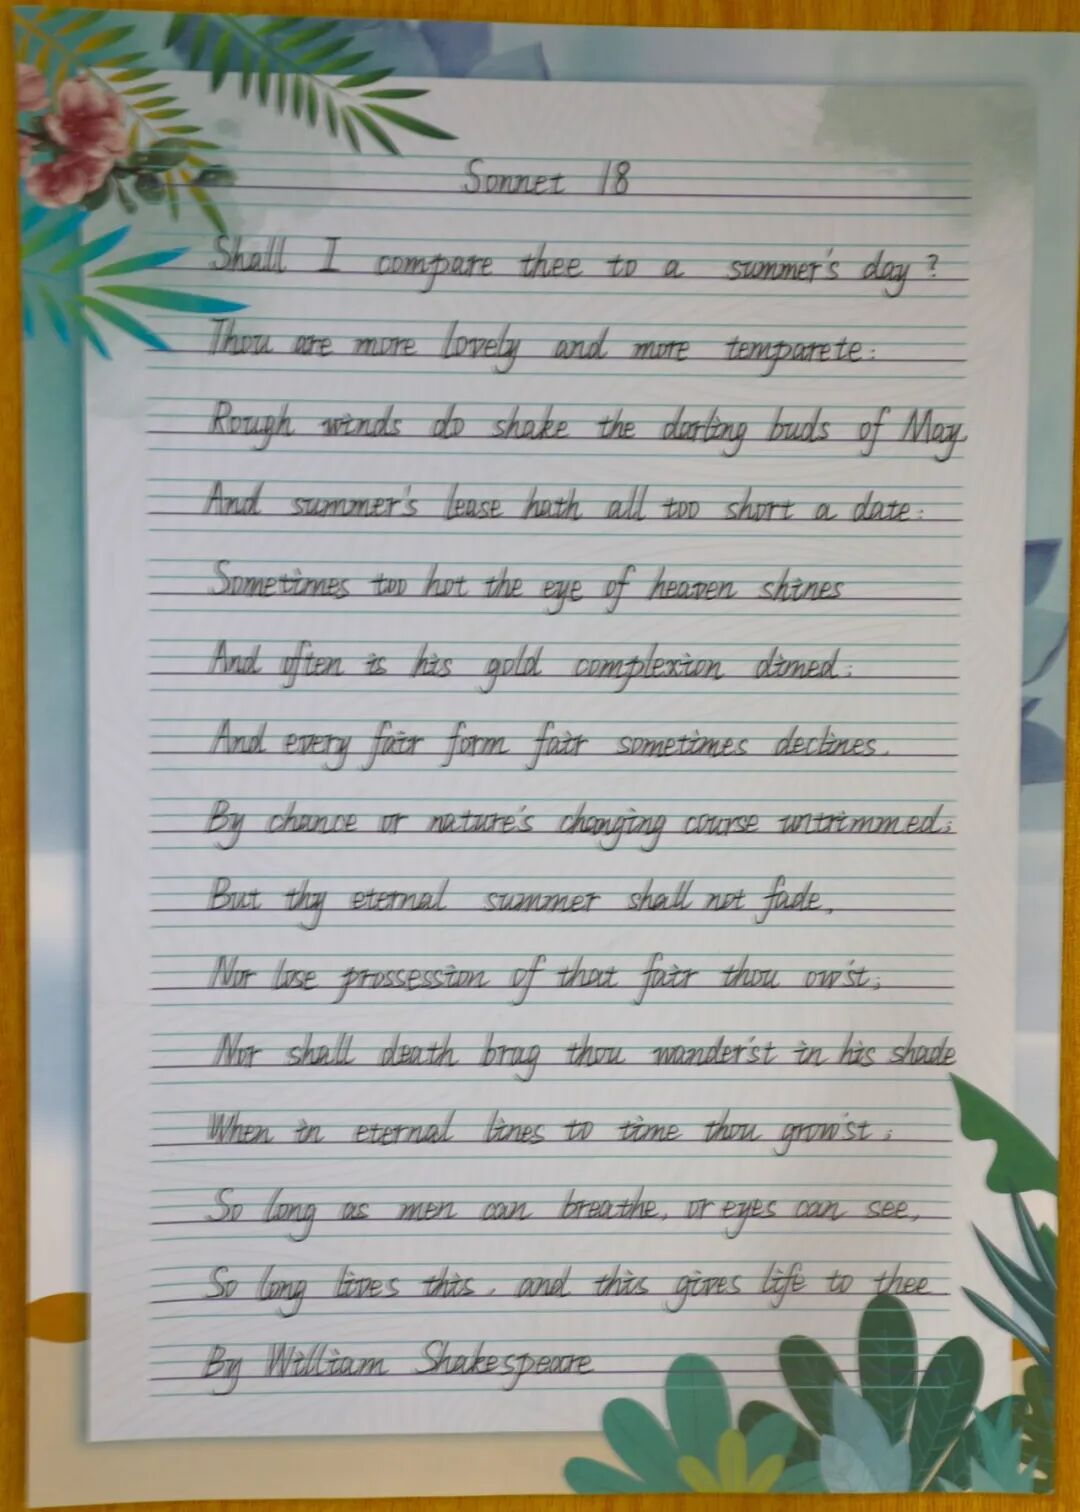 Sonnet 18
Shall I compare thee to a summer's day?
Thou are more lovely and more temparete:
Rough winds do shake the darling buds of May,
And summer's lease hath all too short a date:
Sometimes too hot the eye of heaven shines
And often is his gold complexion dimed;
And every fair form fair sometimes declines,
By chance or nature's changing course untrimmed;
But thy eternal summer shall not fade,
Nor lose prossession of that fair thou ow'st;
Nor shall death brag thou wander'st in his shade
When in eternal lines to time thou grow'st;
So long as men can breathe, or eyes can see,
So long lives this, and this gives life to thee
By William Shakespeare